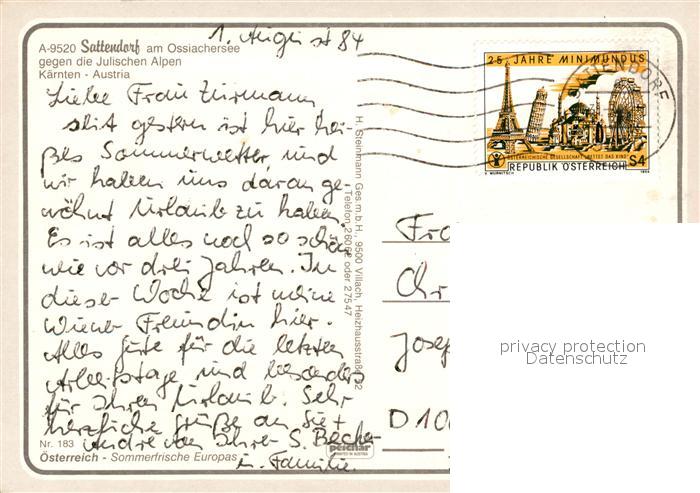 A-9520 Sattendorf am Ossiachersee
gegen die Julischen Alpen
Kärnten - Austria
1. August 84
Liebe Frau
seit gestern ist hier hei-
ßes Sommerwetter und
wir haben uns daran ge-
wöhnt Urlaub zu haben.
Es ist alles noch so schön
wie vor drei Jahren. In
dieser Woche ist meine
Wiener Freundin hier.
Alles Gute für die letzten
Arbeitstage und besonders
für Ihren Urlaub. Sehr
herzliche Grüße an Sie +
andre von Ihrer S. Becher
u. Familie.
Nr. 183
Österreich - Sommerfrische Europas
H. Steinmann Ges.m.b.H., 9500 Villach, Heizhausstraße 32
Telefon 26062 oder 27547
25 JAHRE MINIMUNDUS
SATTENDORF
ÖSTERREICHISCHE GESELLSCHAFT "RETTET DAS KIND"
REPUBLIK ÖSTERREICH S4
1984
Fra
Chr
Josep
D 100
privacy protection
Datenschutz